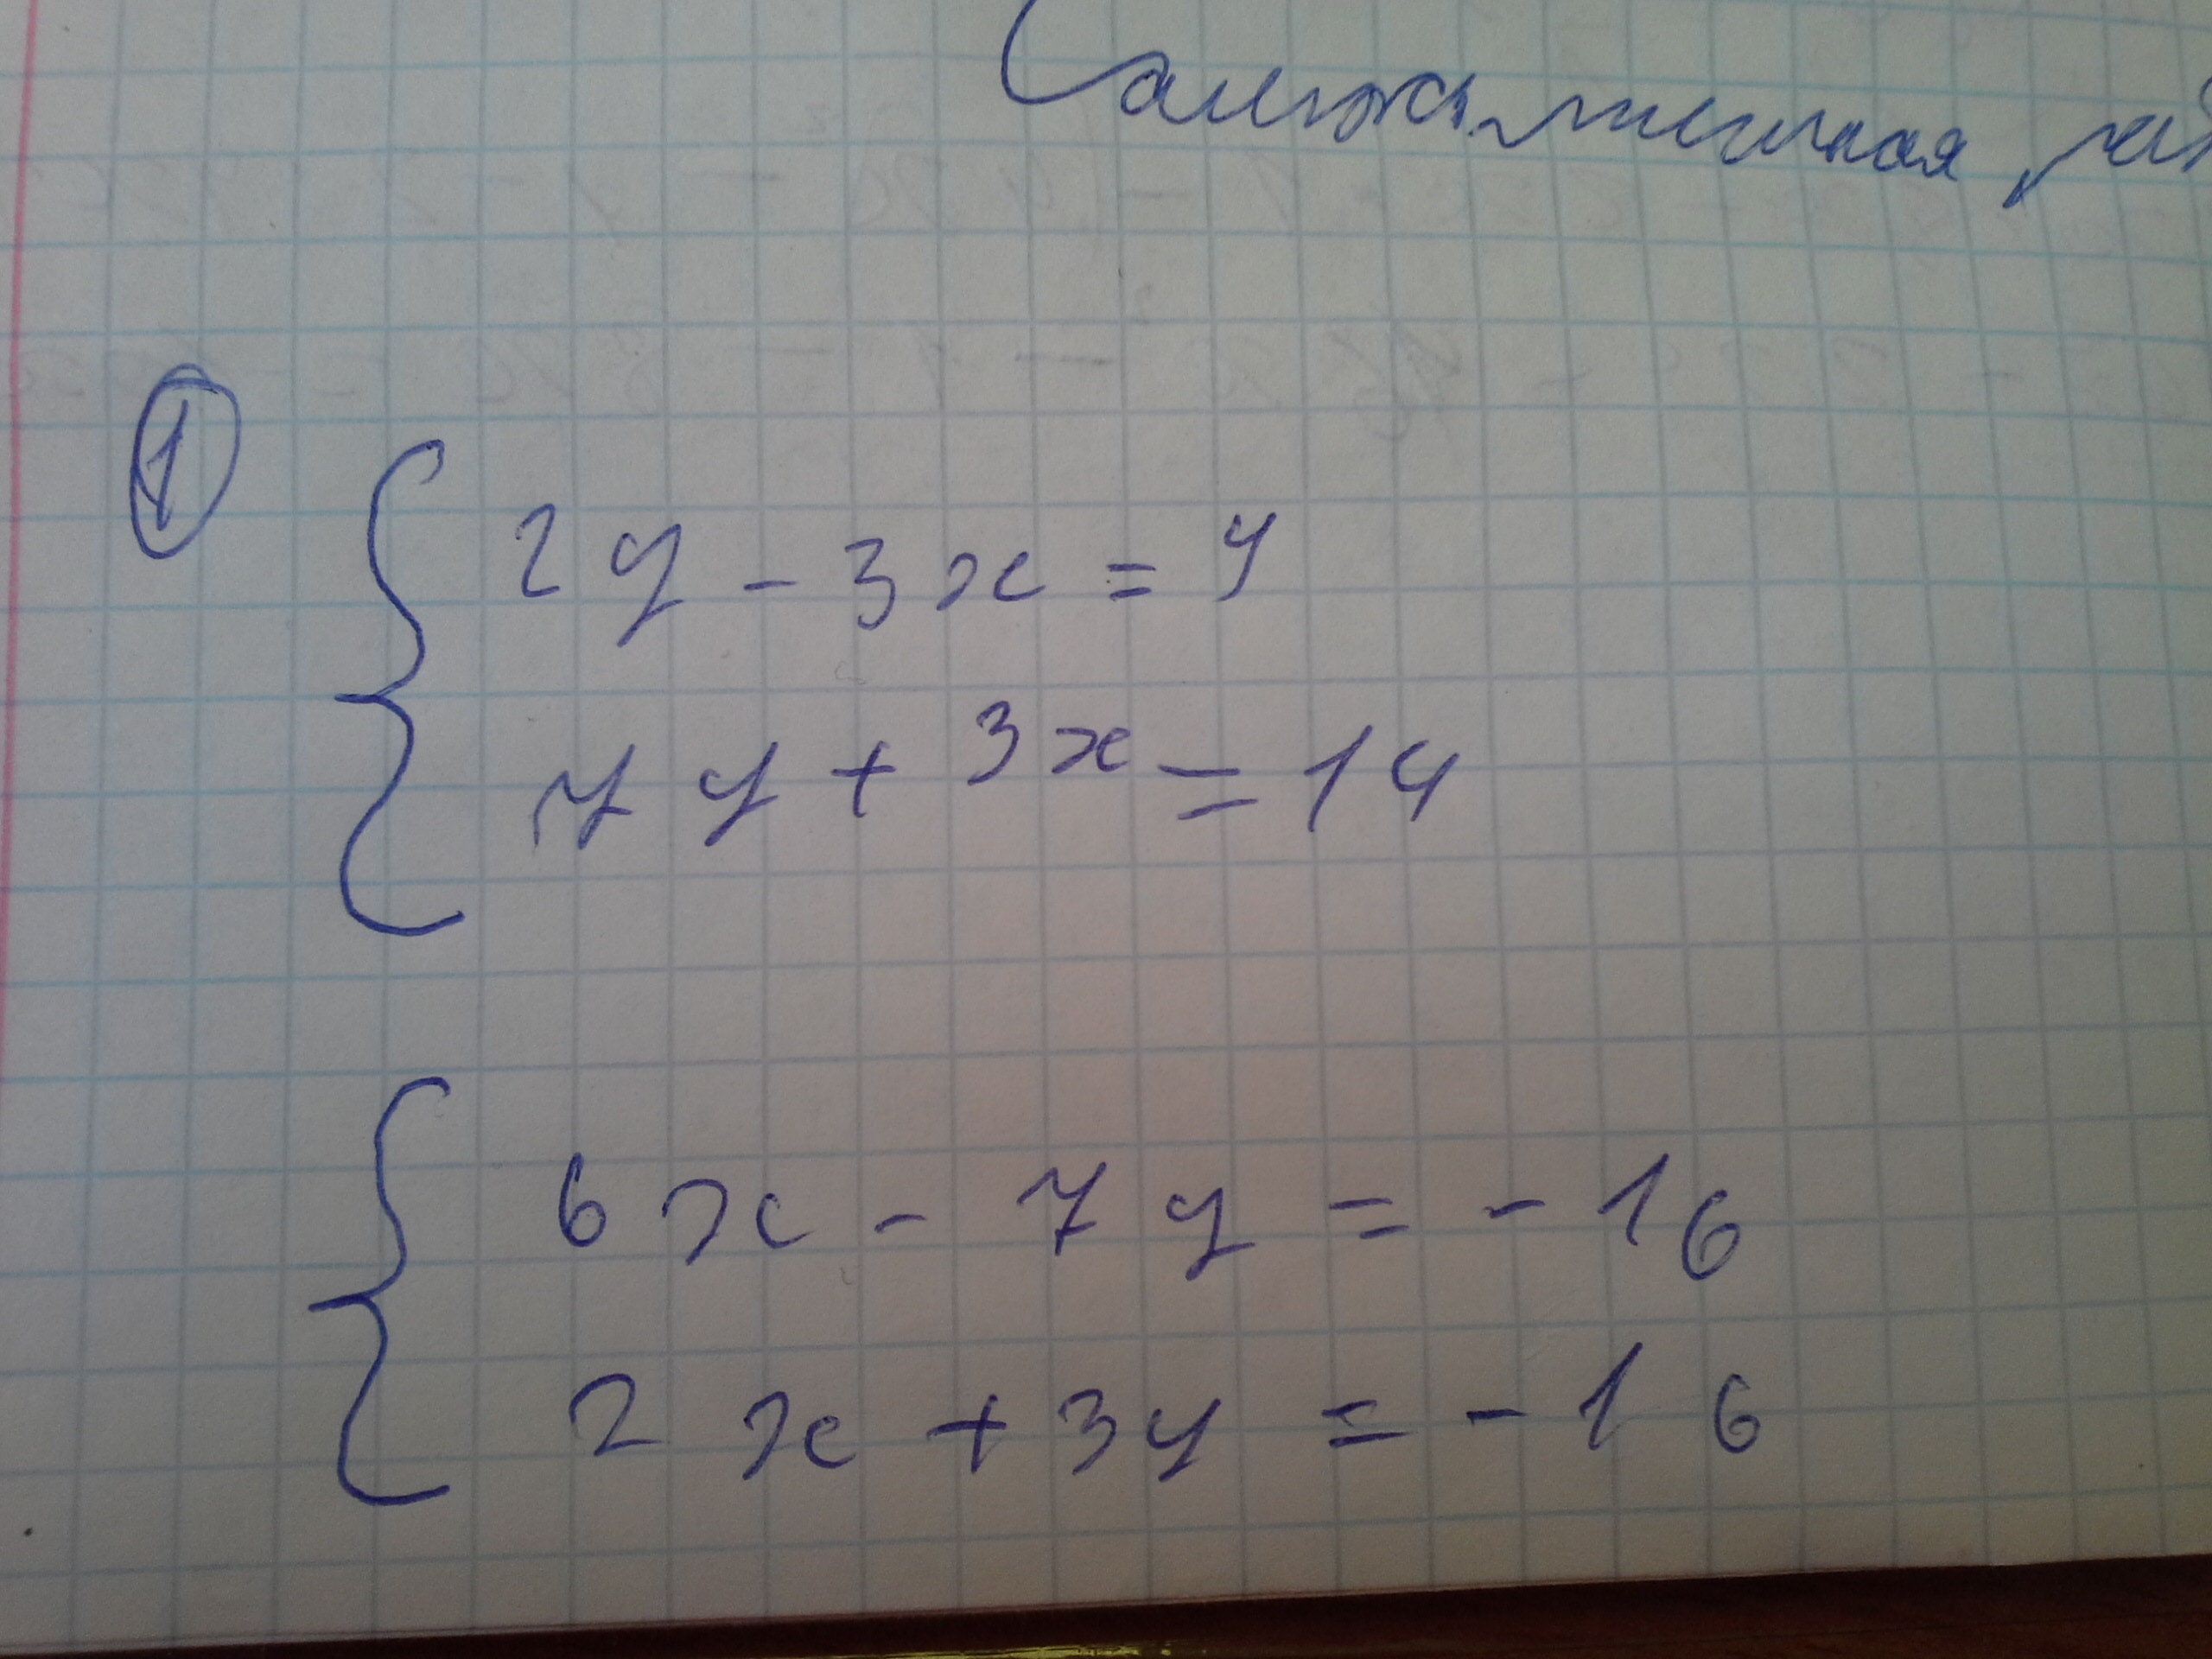 Самостоятельная раб
1
2y - 3x = 4
7y + 3x = 14
6x - 7y = -16
2x + 3y = -16